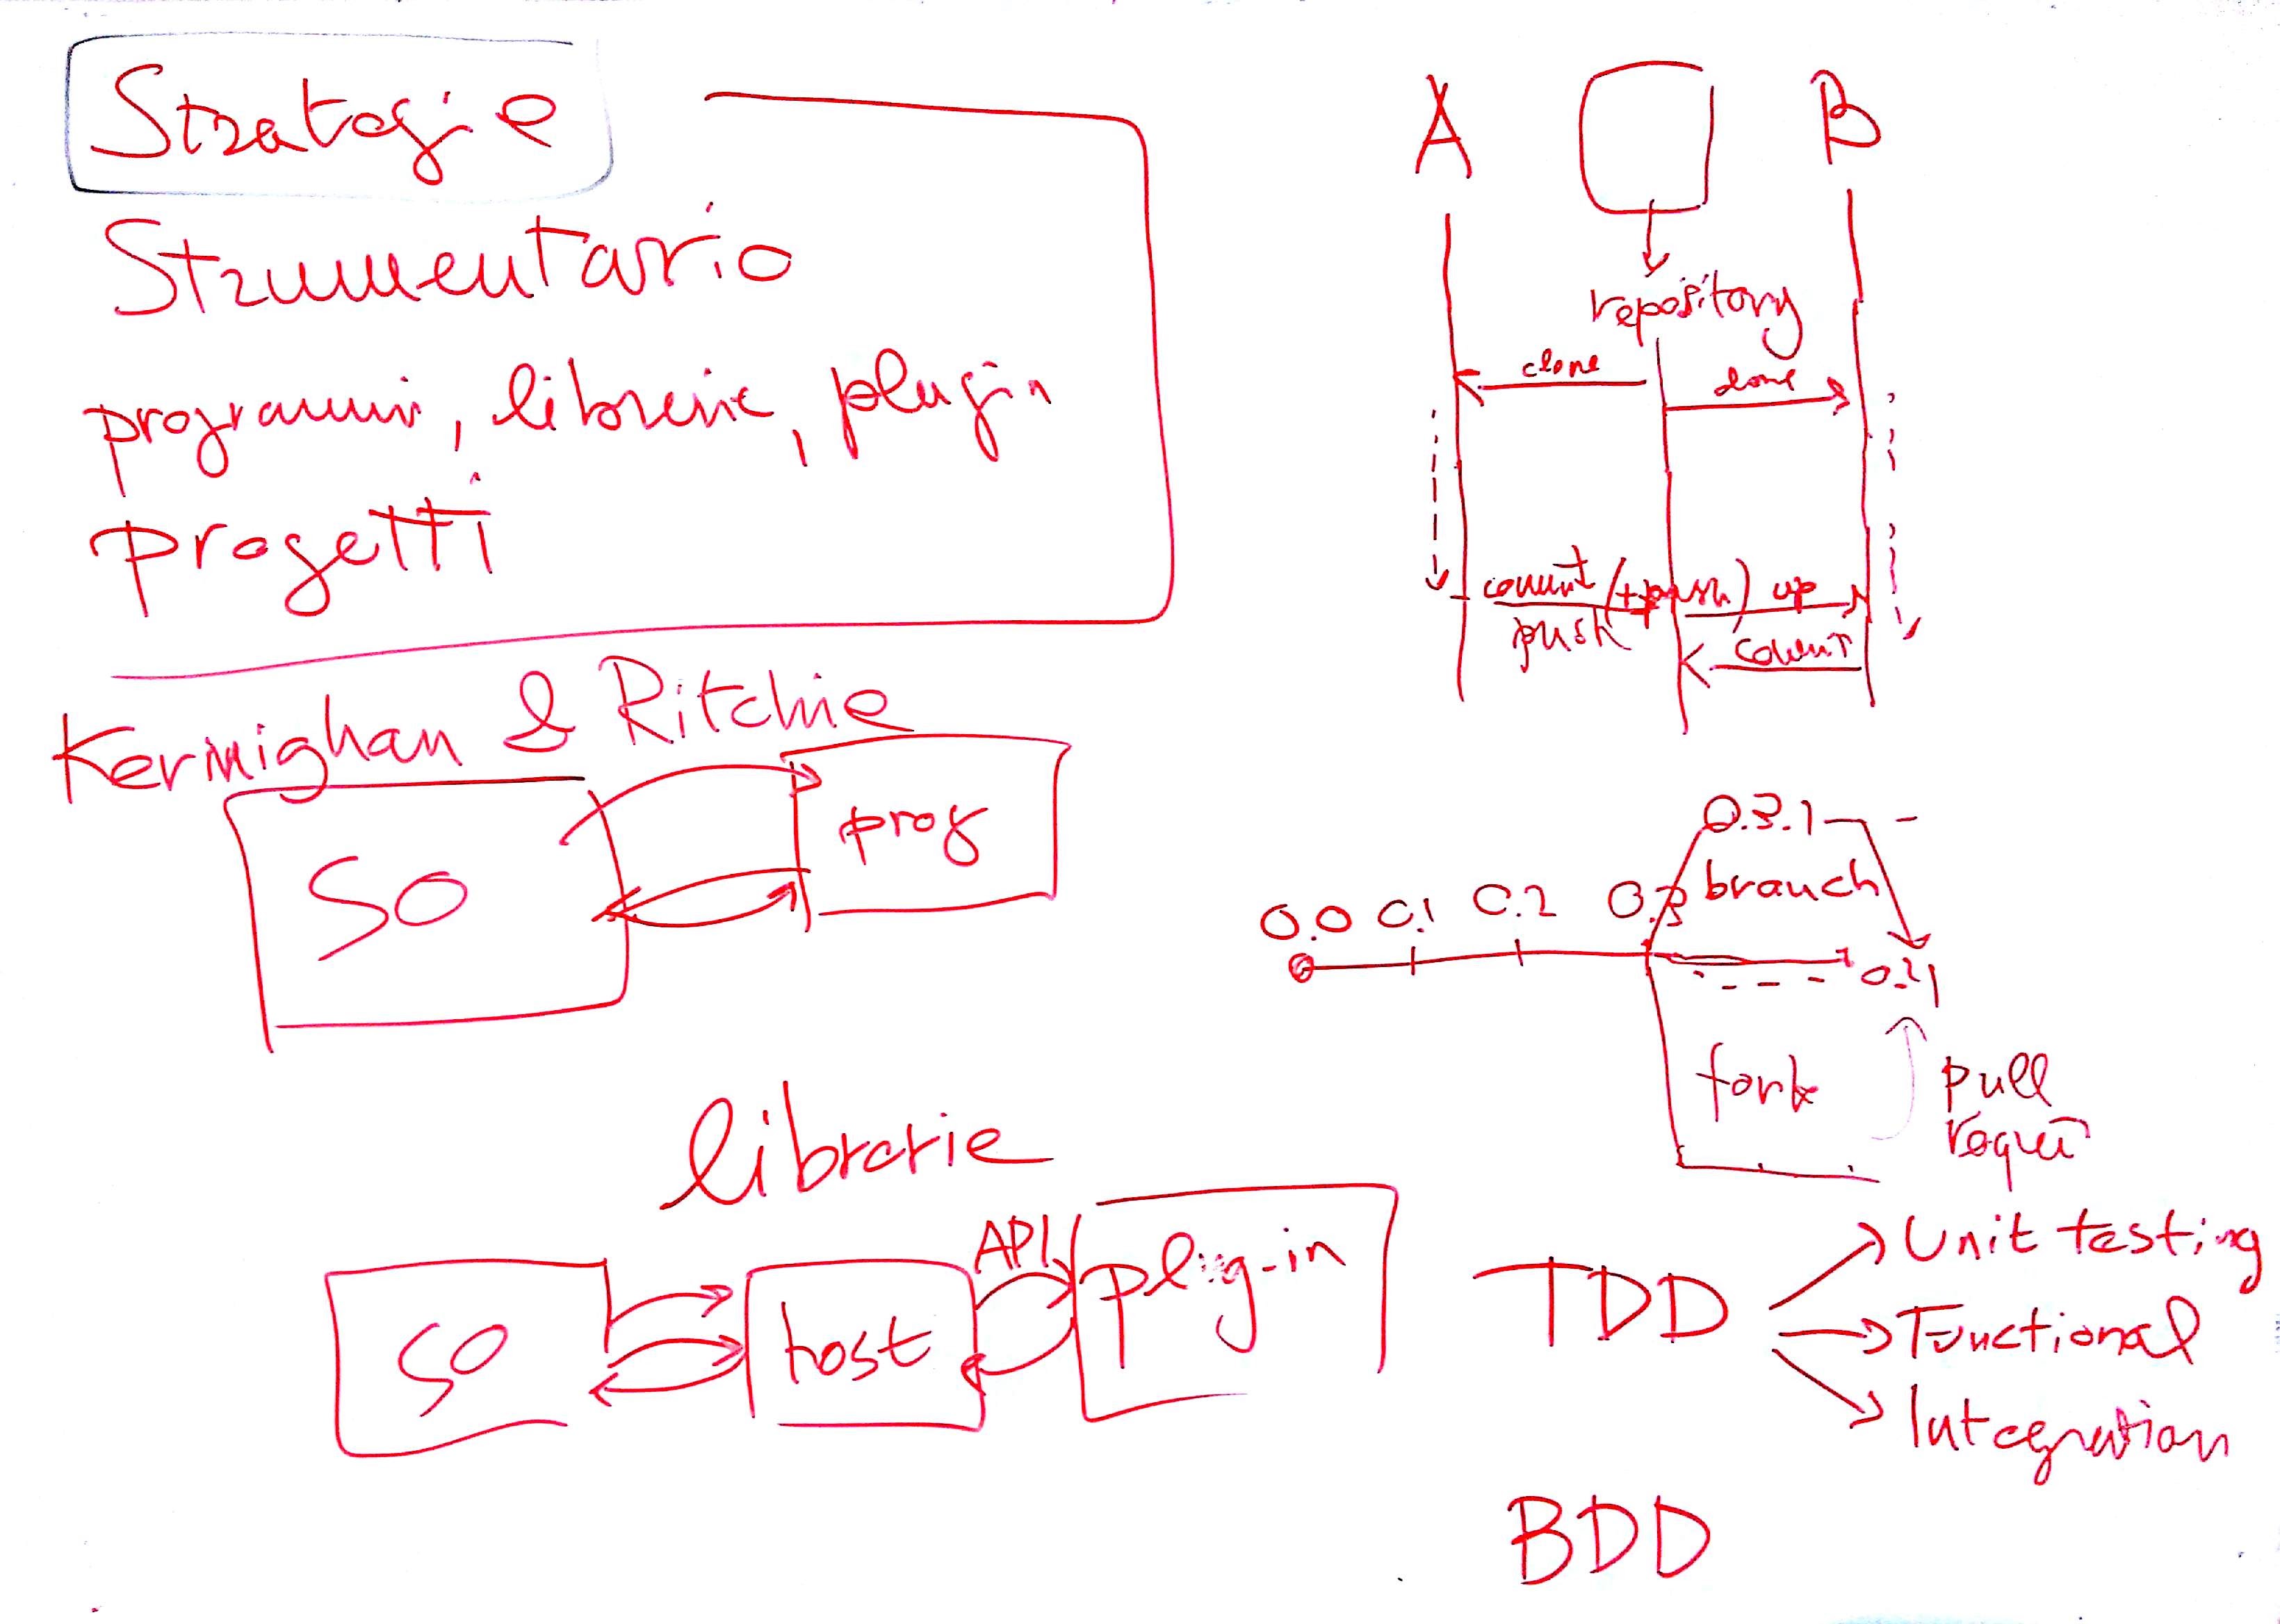 Strategie
Strumentario
programmi, librerie, plugin
progetti
Kernighan & Ritchie
SO
prog
librerie
SO
host
API
plug-in
A
B
repository
clone
clone
commit (+push) up
push
commit
0.3.1
branch
0.0 0.1 0.2 0.3
fork
pull
TDD
Unit testing
Functional
Integration
BDD